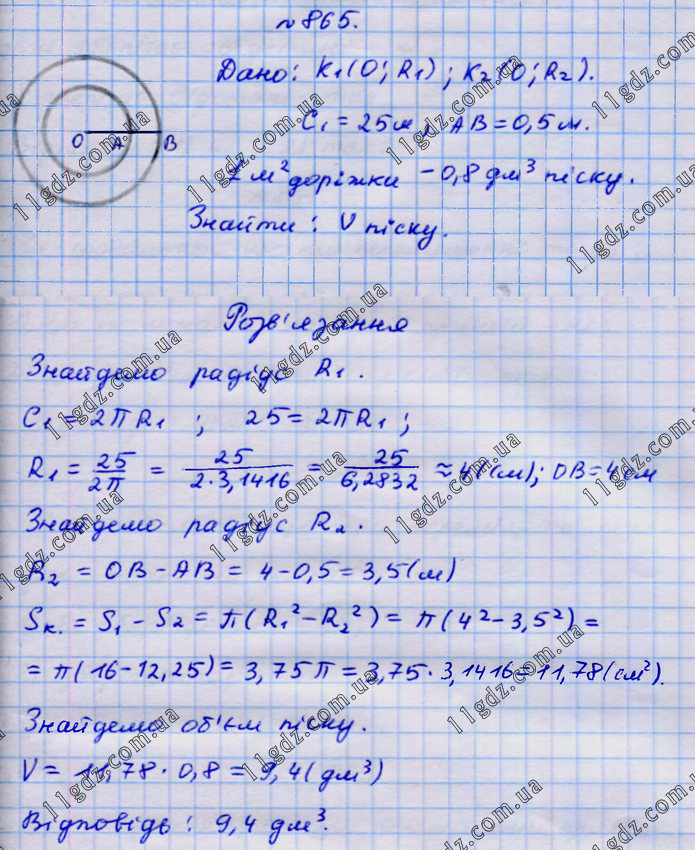 № 865.
Дано: K₁(O; R₁); K₂(O; R₂).
C₁ = 25 м, AB = 0,5 м.
O A B
1 м² доріжки – 0,8 дм³ піску.
Знайти: V піску.
Розв'язання
Знайдемо радіус R₁.
C₁ = 2πR₁ ; 25 = 2πR₁ ;
R₁ = 25/2π = 25/2·3,1416 = 25/6,2832 ≈ 4 (м); OB = 4 см
Знайдемо радіус R₂.
R₂ = OB – AB = 4 – 0,5 = 3,5 (м)
Sк. = S₁ – S₂ = π(R₁² – R₂²) = π(4² – 3,5²) =
= π(16 – 12,25) = 3,75π = 3,75 · 3,1416 = 11,78 (см²).
Знайдемо об'єм піску.
V = 11,78 · 0,8 = 9,4 (дм³)
Відповідь: 9,4 дм³.
11gdz.com.ua